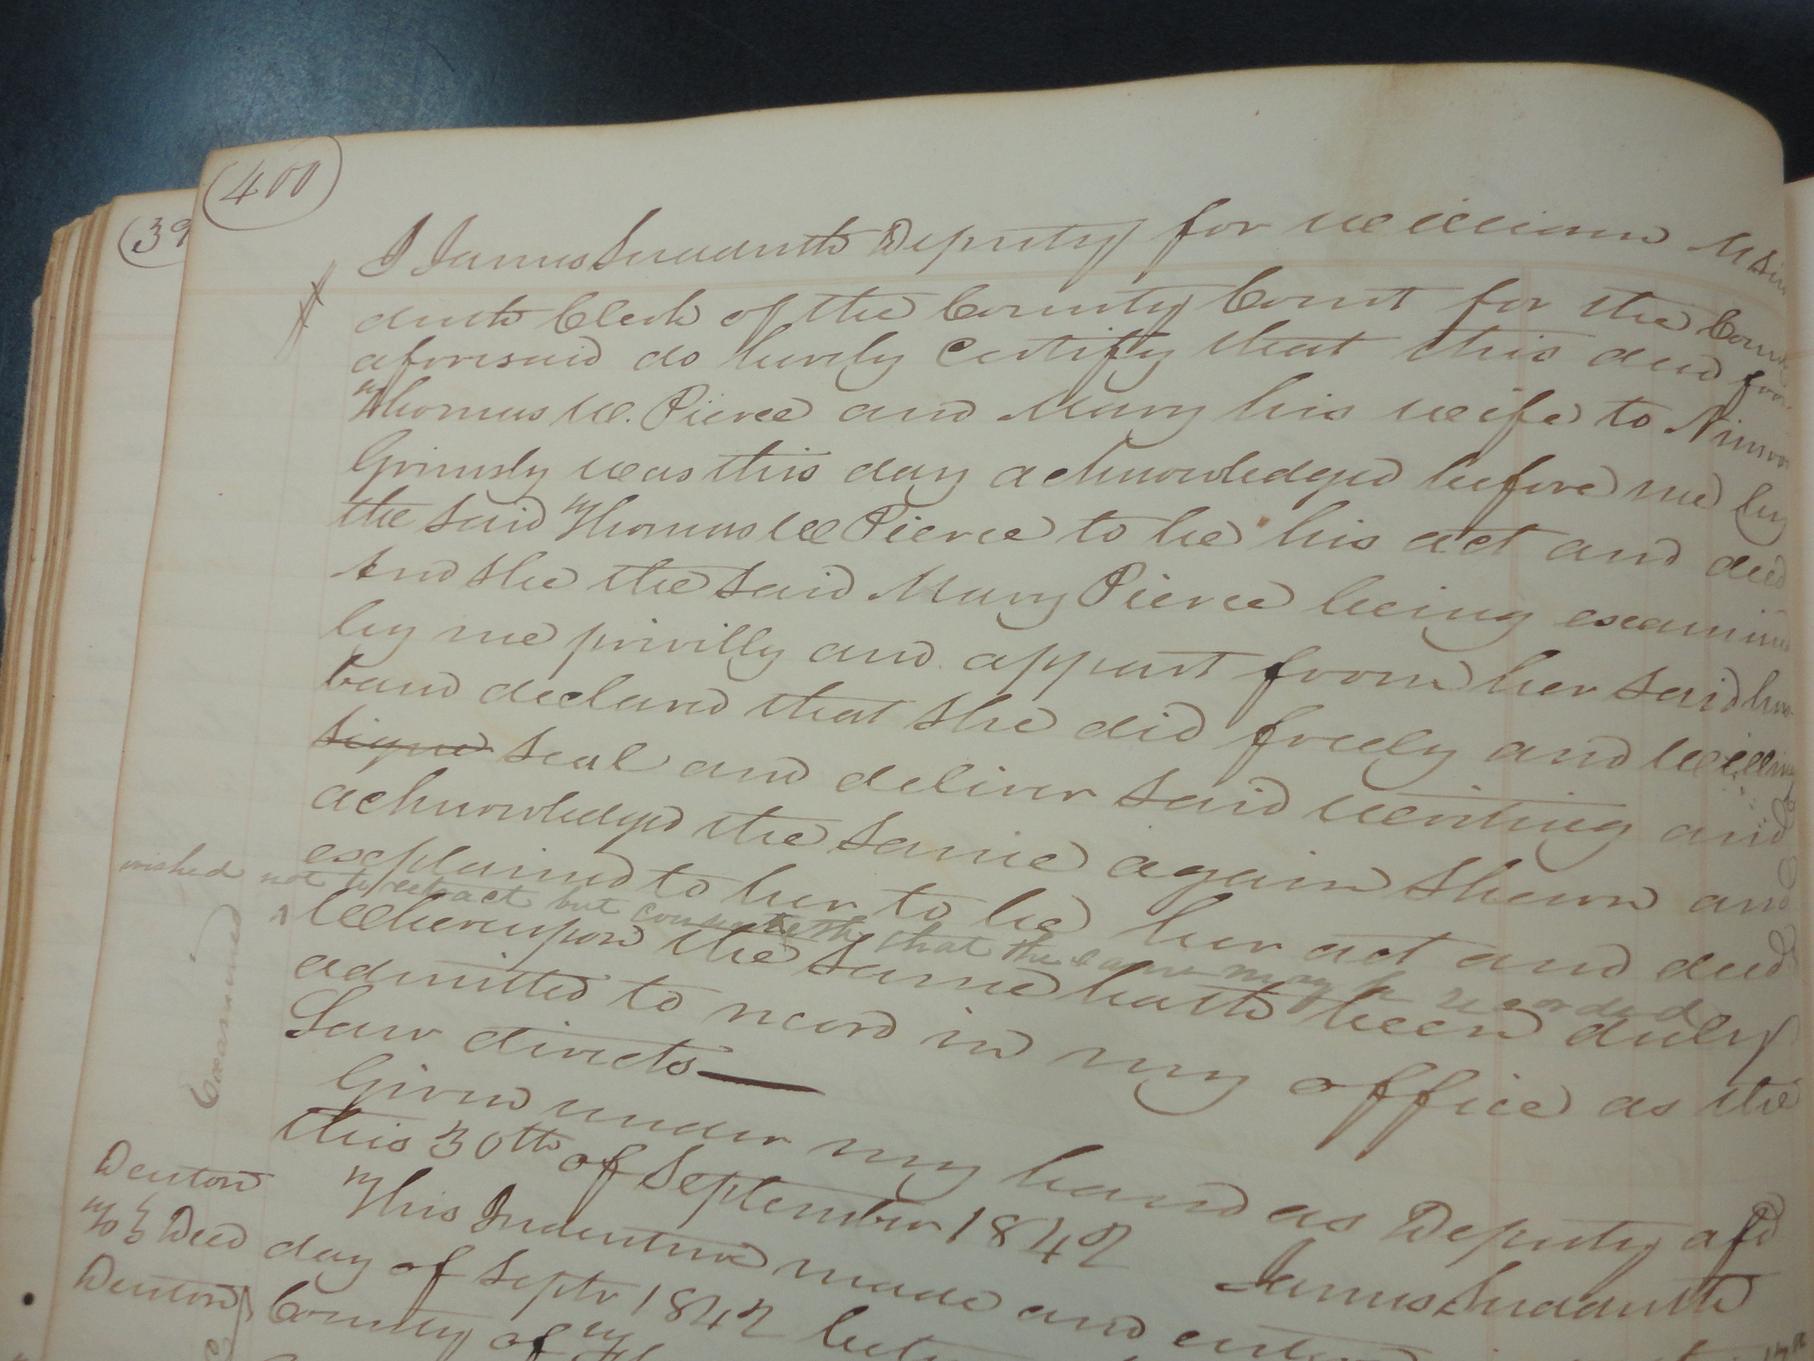 400
(39
I James Sudduth Deputy for William M Sud
duth Clerk of the County Court for the County
aforesaid do hereby Certify that this deed from
Thomas W. Pierce and Mary his wife to Nimro
Grimsly was this day acknowledged before me by
the said Thomas W Pierce to be his act and deed
And she the said Mary Pierce being examined
by me privilly and appart from her said hus
band declared that she did freely and willing
signed seal and deliver said writing and
acknowledged the same again shewn and
explained to her to be her act and deed
wished not to retract but consenteth that the same may be recorded
Whereupon the same hath been duly
admitted to record in my office as the
Law directs
Given under my hand as Deputy afd
this 30th of September 1842
James Sudduth
Examined
Denton
To } Deed
Denton
This Indenture made and entered
day of Septr 1842
County of